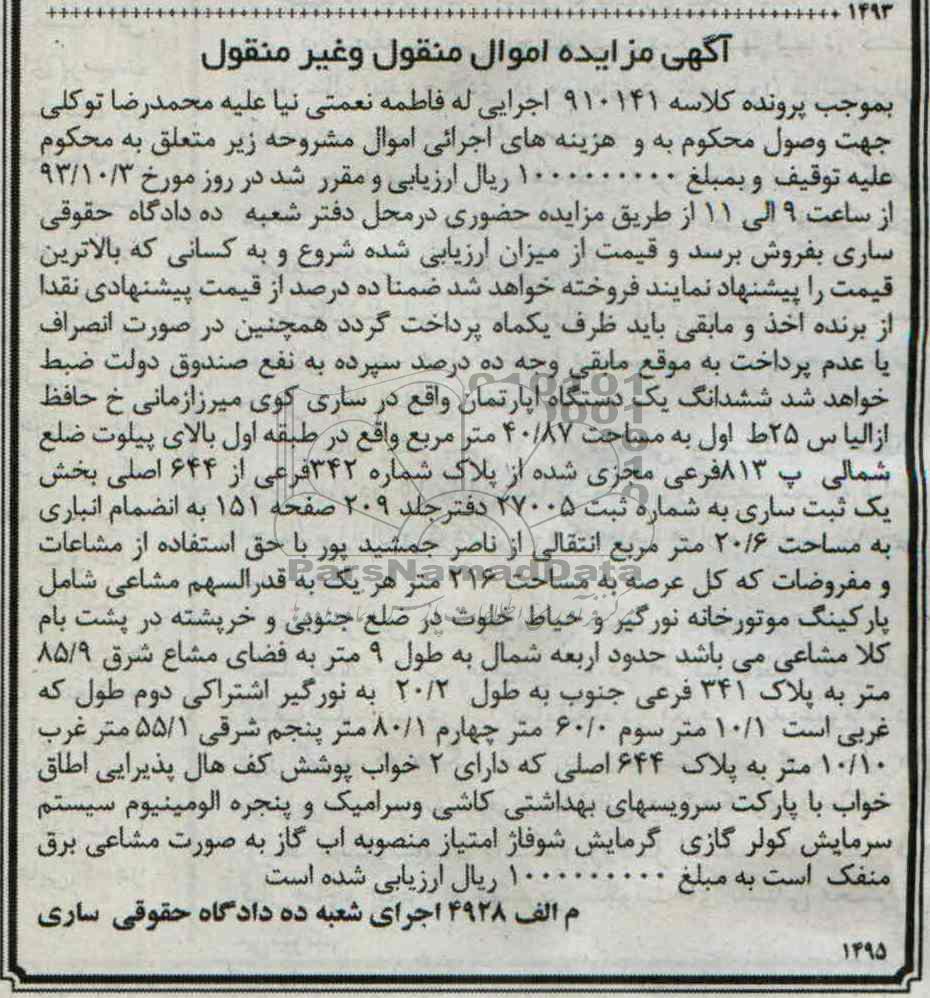 ۱۴۹۳
آگهی مزایده اموال منقول وغیر منقول
بموجب پرونده کلاسه ۹۱۰۱۴۱ اجرایی له فاطمه نعمتی نیا علیه محمدرضا توکلی
جهت وصول محکوم به و هزینه های اجرائی اموال مشروحه زیر متعلق به محکوم
علیه توقیف و بمبلغ ۱۰۰۰۰۰۰۰۰۰ ریال ارزیابی و مقرر شد در روز مورخ ۹۳/۱۰/۳
از ساعت ۹ الی ۱۱ از طریق مزایده حضوری درمحل دفتر شعبه ده دادگاه حقوقی
ساری بفروش برسد و قیمت از میزان ارزیابی شده شروع و به کسانی که بالاترین
قیمت را پیشنهاد نمایند فروخته خواهد شد ضمنا ده درصد از قیمت پیشنهادی نقدا
از برنده اخذ و مابقی باید ظرف یکماه پرداخت گردد همچنین در صورت انصراف
یا عدم پرداخت به موقع مابقی وجه ده درصد سپرده به نفع صندوق دولت ضبط
خواهد شد ششدانگ یک دستگاه اپارتمان واقع در ساری کوی میرزازمانی خ حافظ
ازالیا س ۲۵ط اول به مساحت ۴۰/۸۷ متر مربع واقع در طبقه اول بالای پیلوت ضلع
شمالی پ ۸۱۳فرعی مجزی شده از پلاک شماره ۳۴۲فرعی از ۶۴۴ اصلی بخش
یک ثبت ساری به شماره ثبت ۲۷۰۰۵ دفترجلد ۲۰۹ صفحه ۱۵۱ به انضمام انباری
به مساحت ۲۰/۶ متر مربع انتقالی از ناصر جمشید پور با حق استفاده از مشاعات
و مفروضات که کل عرصه به مساحت ۲۱۶ متر هر یک به قدرالسهم مشاعی شامل
پارکینگ موتورخانه نورگیر و حیاط خلوت در ضلع جنوبی و خرپشته در پشت بام
کلا مشاعی می باشد حدود اربعه شمال به طول ۹ متر به فضای مشاع شرق ۸۵/۹
متر به پلاک ۳۴۱ فرعی جنوب به طول ۲۰/۲ به نورگیر اشتراکی دوم طول که
غربی است ۱۰/۱ متر سوم ۶۰/۰ متر چهارم ۸۰/۱ متر پنجم شرقی ۵۵/۱ متر غرب
۱۰/۱۰ متر به پلاک ۶۴۴ اصلی که دارای ۲ خواب پوشش کف هال پذیرایی اطاق
خواب با پارکت سرویسهای بهداشتی کاشی وسرامیک و پنجره الومینیوم سیستم
سرمایش کولر گازی گرمایش شوفاژ امتیاز منصوبه اب گاز به صورت مشاعی برق
منفک است به مبلغ ۱۰۰۰۰۰۰۰۰۰ ریال ارزیابی شده است
م الف ۴۹۲۸ اجرای شعبه ده دادگاه حقوقی ساری
۱۴۹۵
ParsNamadData